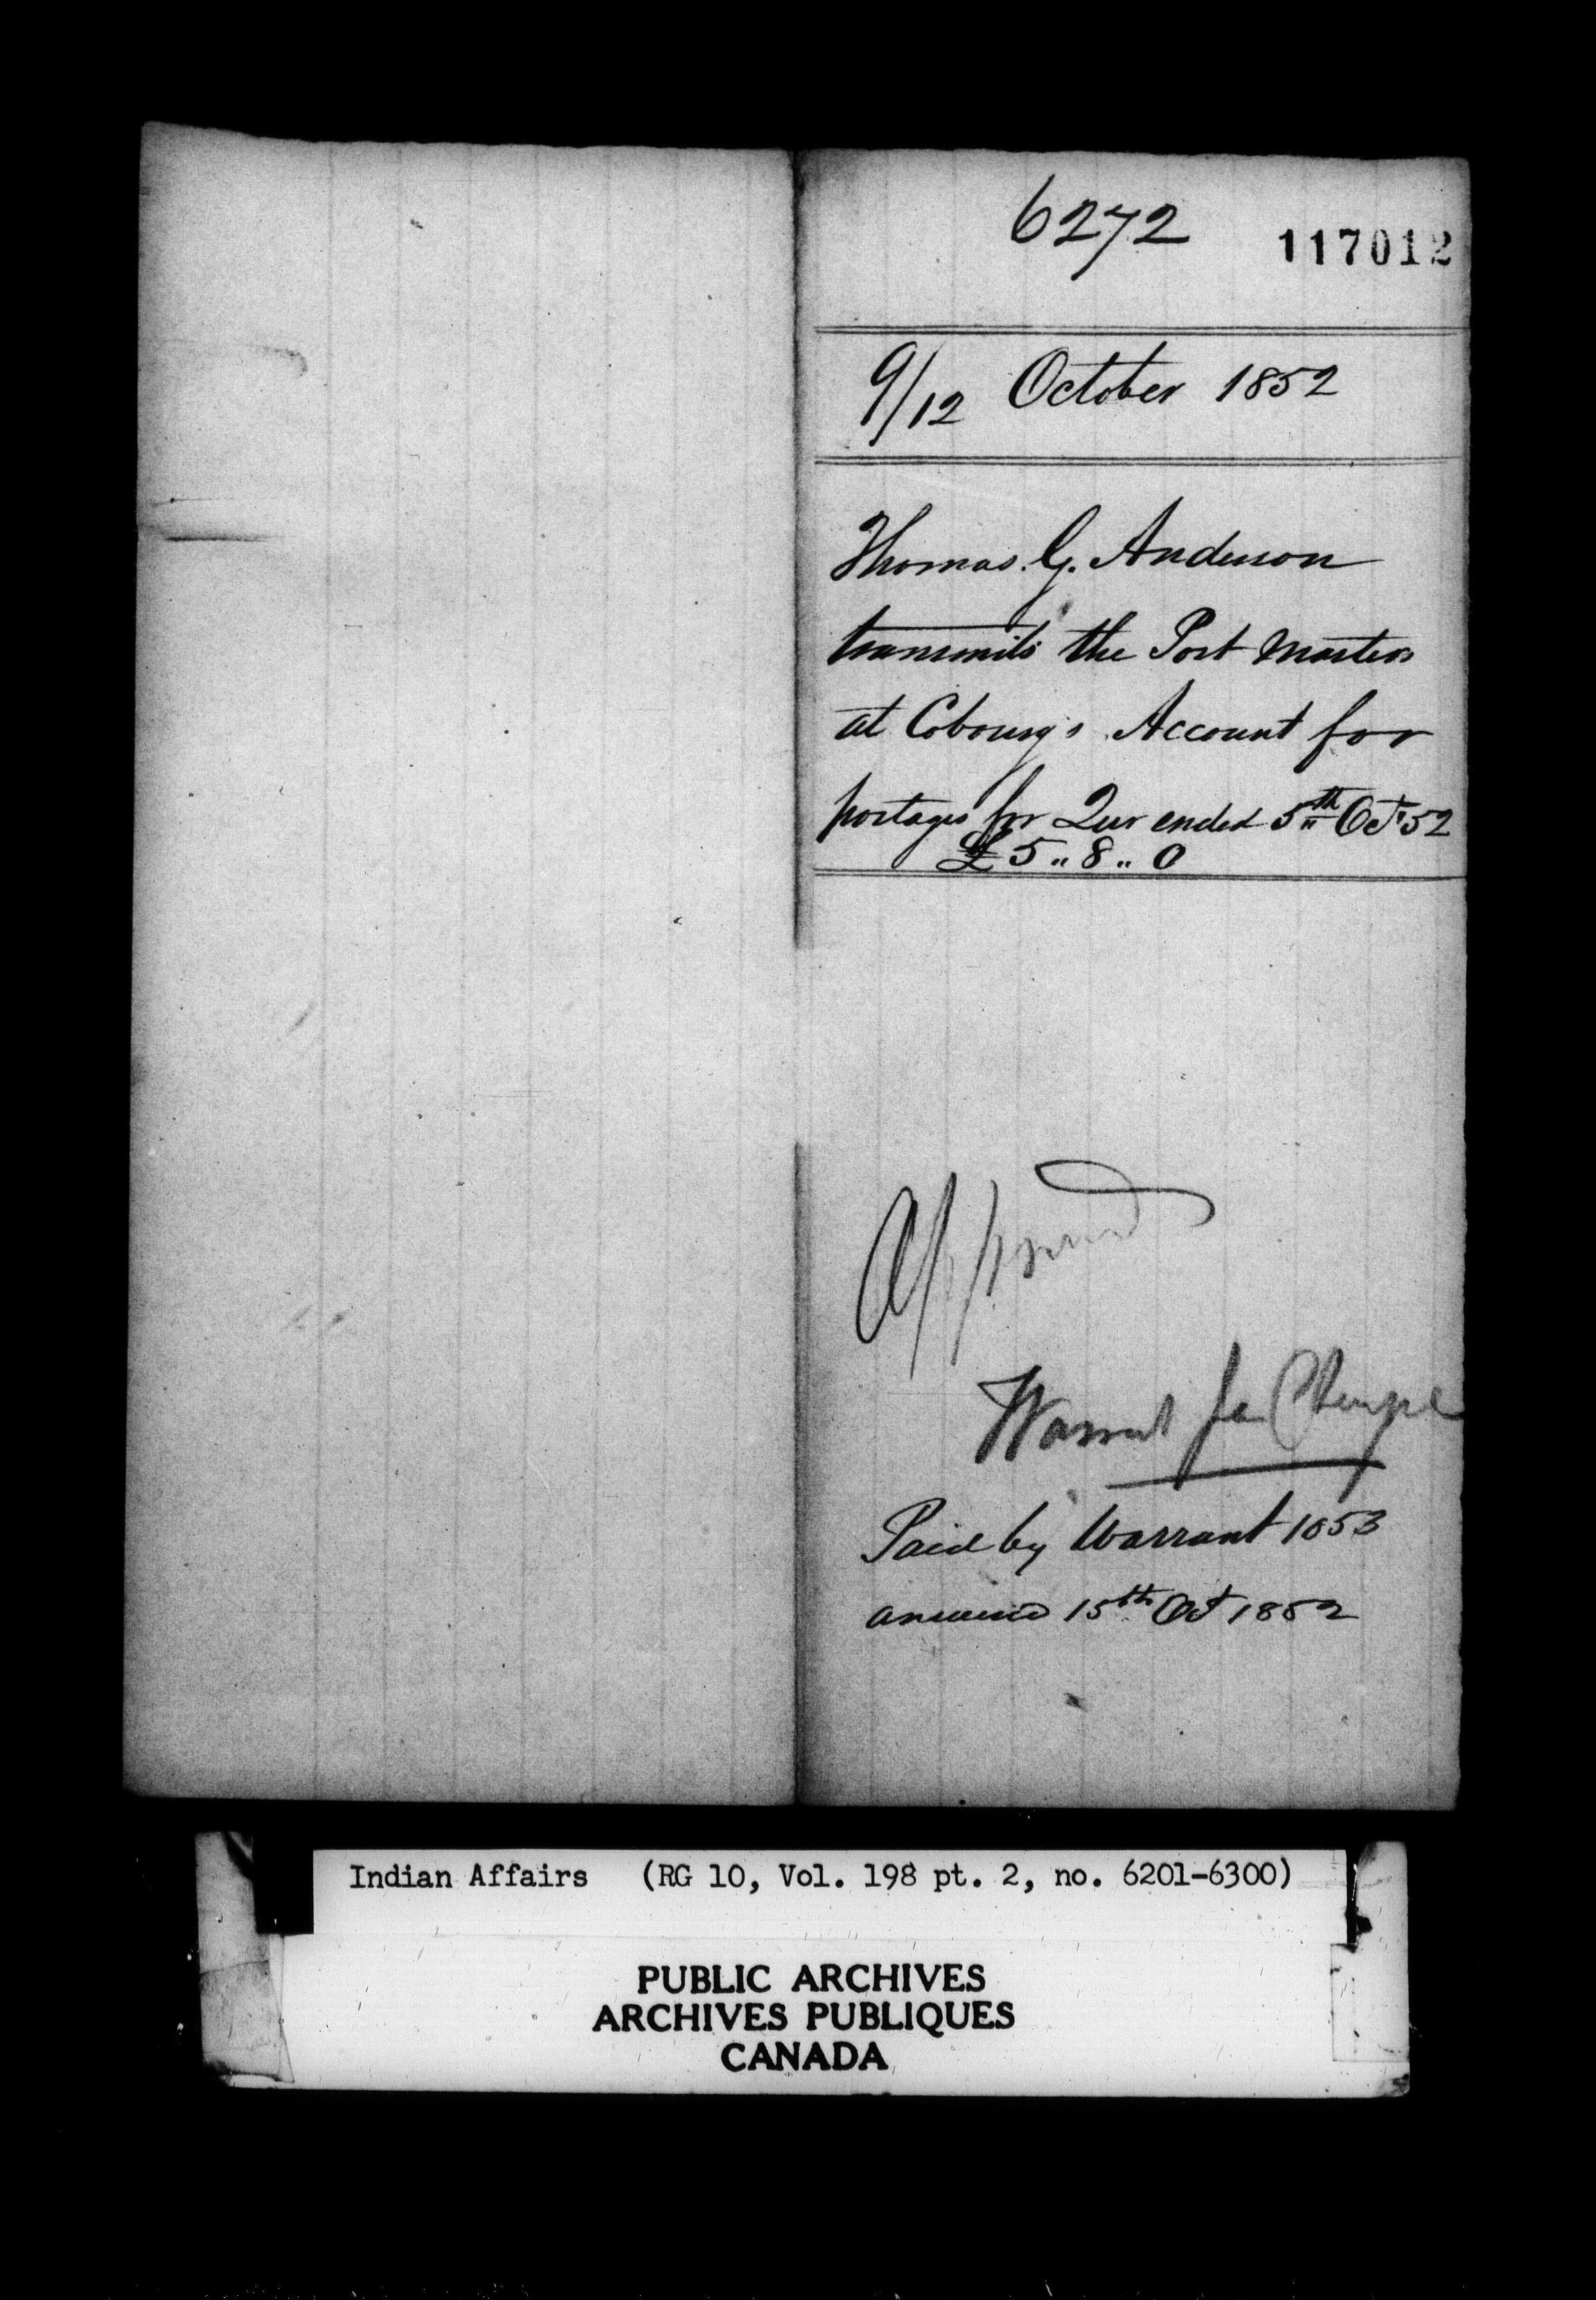 6272
117012
9/12 October 1852
Thomas. G. Anderson
transmits the Post Masters
at Cobourg's Account for
postages for Qur ended 5th Oct 52
£5,,8,,0
Approved
Warrant for
Paid by Warrant 1053
answered 15th Oct 1852
Indian Affairs (RG 10, Vol. 198 pt. 2, no. 6201-6300)
PUBLIC ARCHIVES
ARCHIVES PUBLIQUES
CANADA